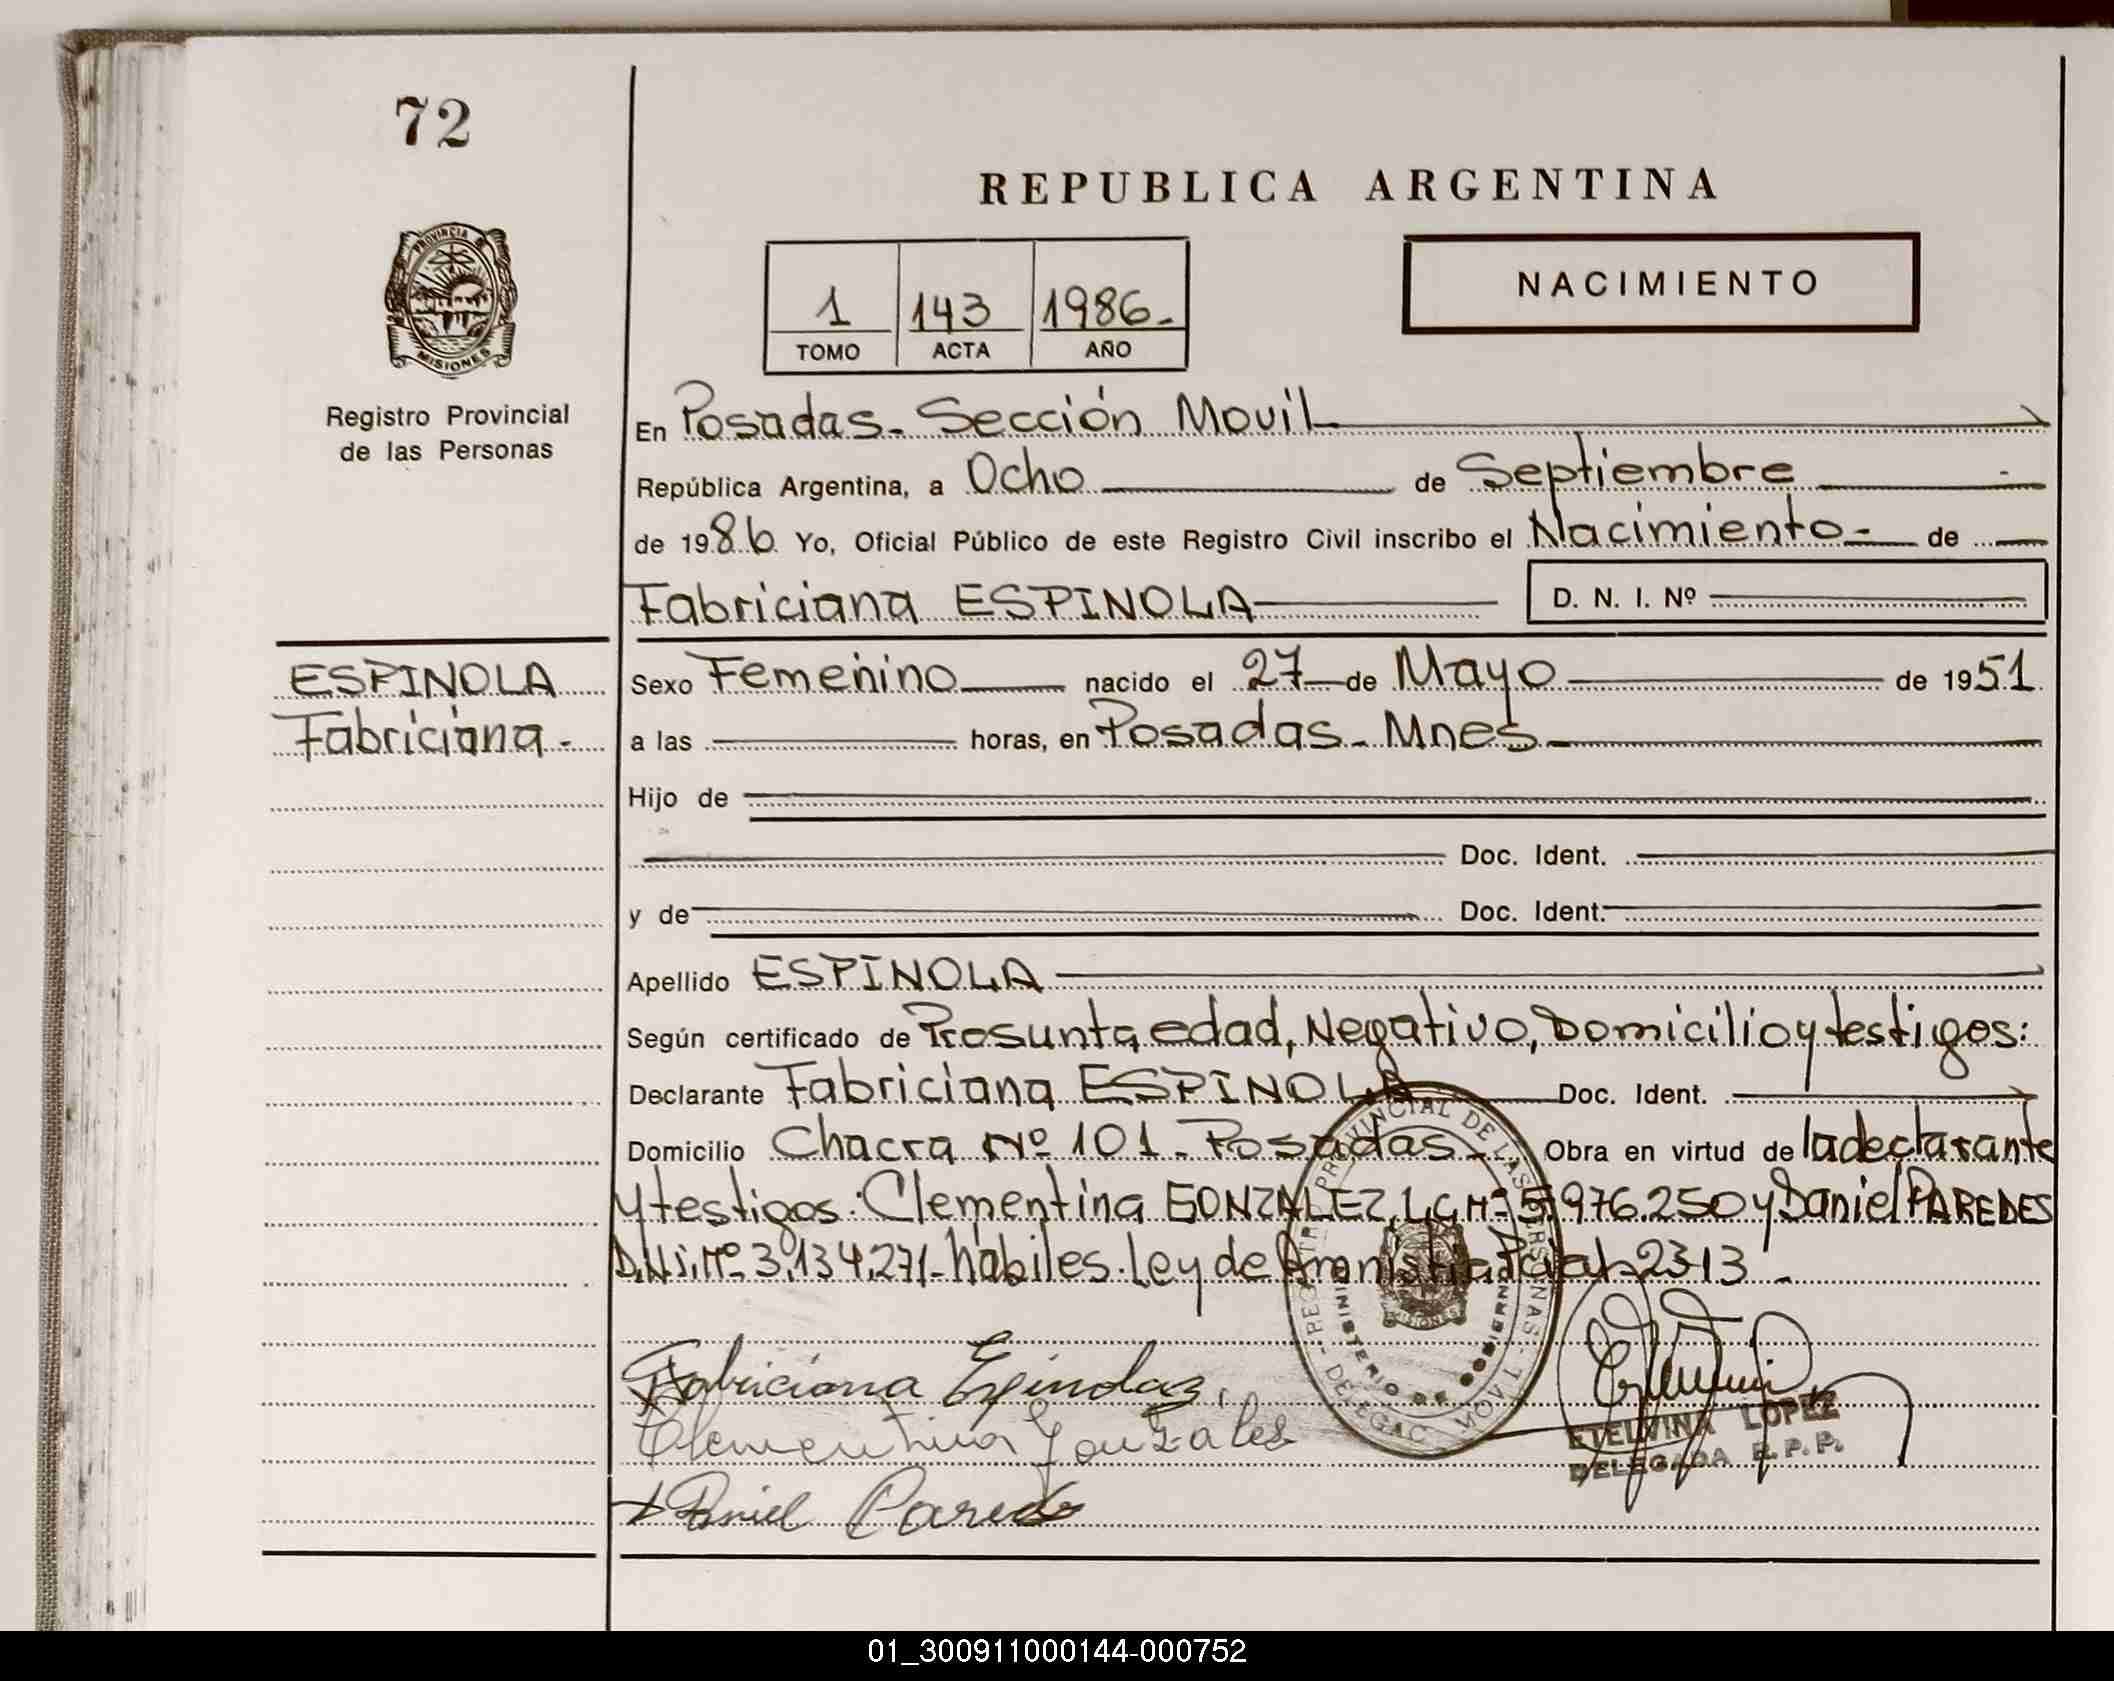 72
REPUBLICA ARGENTINA
PROVINCIA D
MISIONES
1 143 1986.-
TOMO ACTA AÑO
NACIMIENTO
Registro Provincial
de las Personas
En Posadas - Sección Movil
República Argentina, a Ocho de Septiembre
de 1986 Yo, Oficial Público de este Registro Civil inscribo el Nacimiento - de
Fabriciana ESPINOLA D. N. I. Nº
ESPINOLA
Fabriciana -
Sexo Femenino nacido el 27 de Mayo de 1951
a las horas, en Posadas - Mnes
Hijo de
Doc. Ident.
y de Doc. Ident.
Apellido ESPINOLA
Según certificado de Presunta edad, Negativo, Domicilio y testigos:
Declarante Fabriciana ESPINOLA Doc. Ident.
Domicilio Chacra Nº 101 - Posadas - Obra en virtud de la declarante
y testigos: Clementina GONZALEZ, L.C.Nº 5.976.250 y Daniel PAREDES
D.N.I. Nº 3.134.271 - hábiles. Ley de Amnistia 2313 -
REGISTRO PROVINCIAL DE LAS PERSONAS
MINISTERIO DE GOBIERNO
DELEGAC. MOVIL
MISIONES
Fabriciana Espindoa
Clementina Gonzales
Daniel Paredes
ETELVINA LOPEZ
DELEGADA R. P. P.
01_300911000144-000752